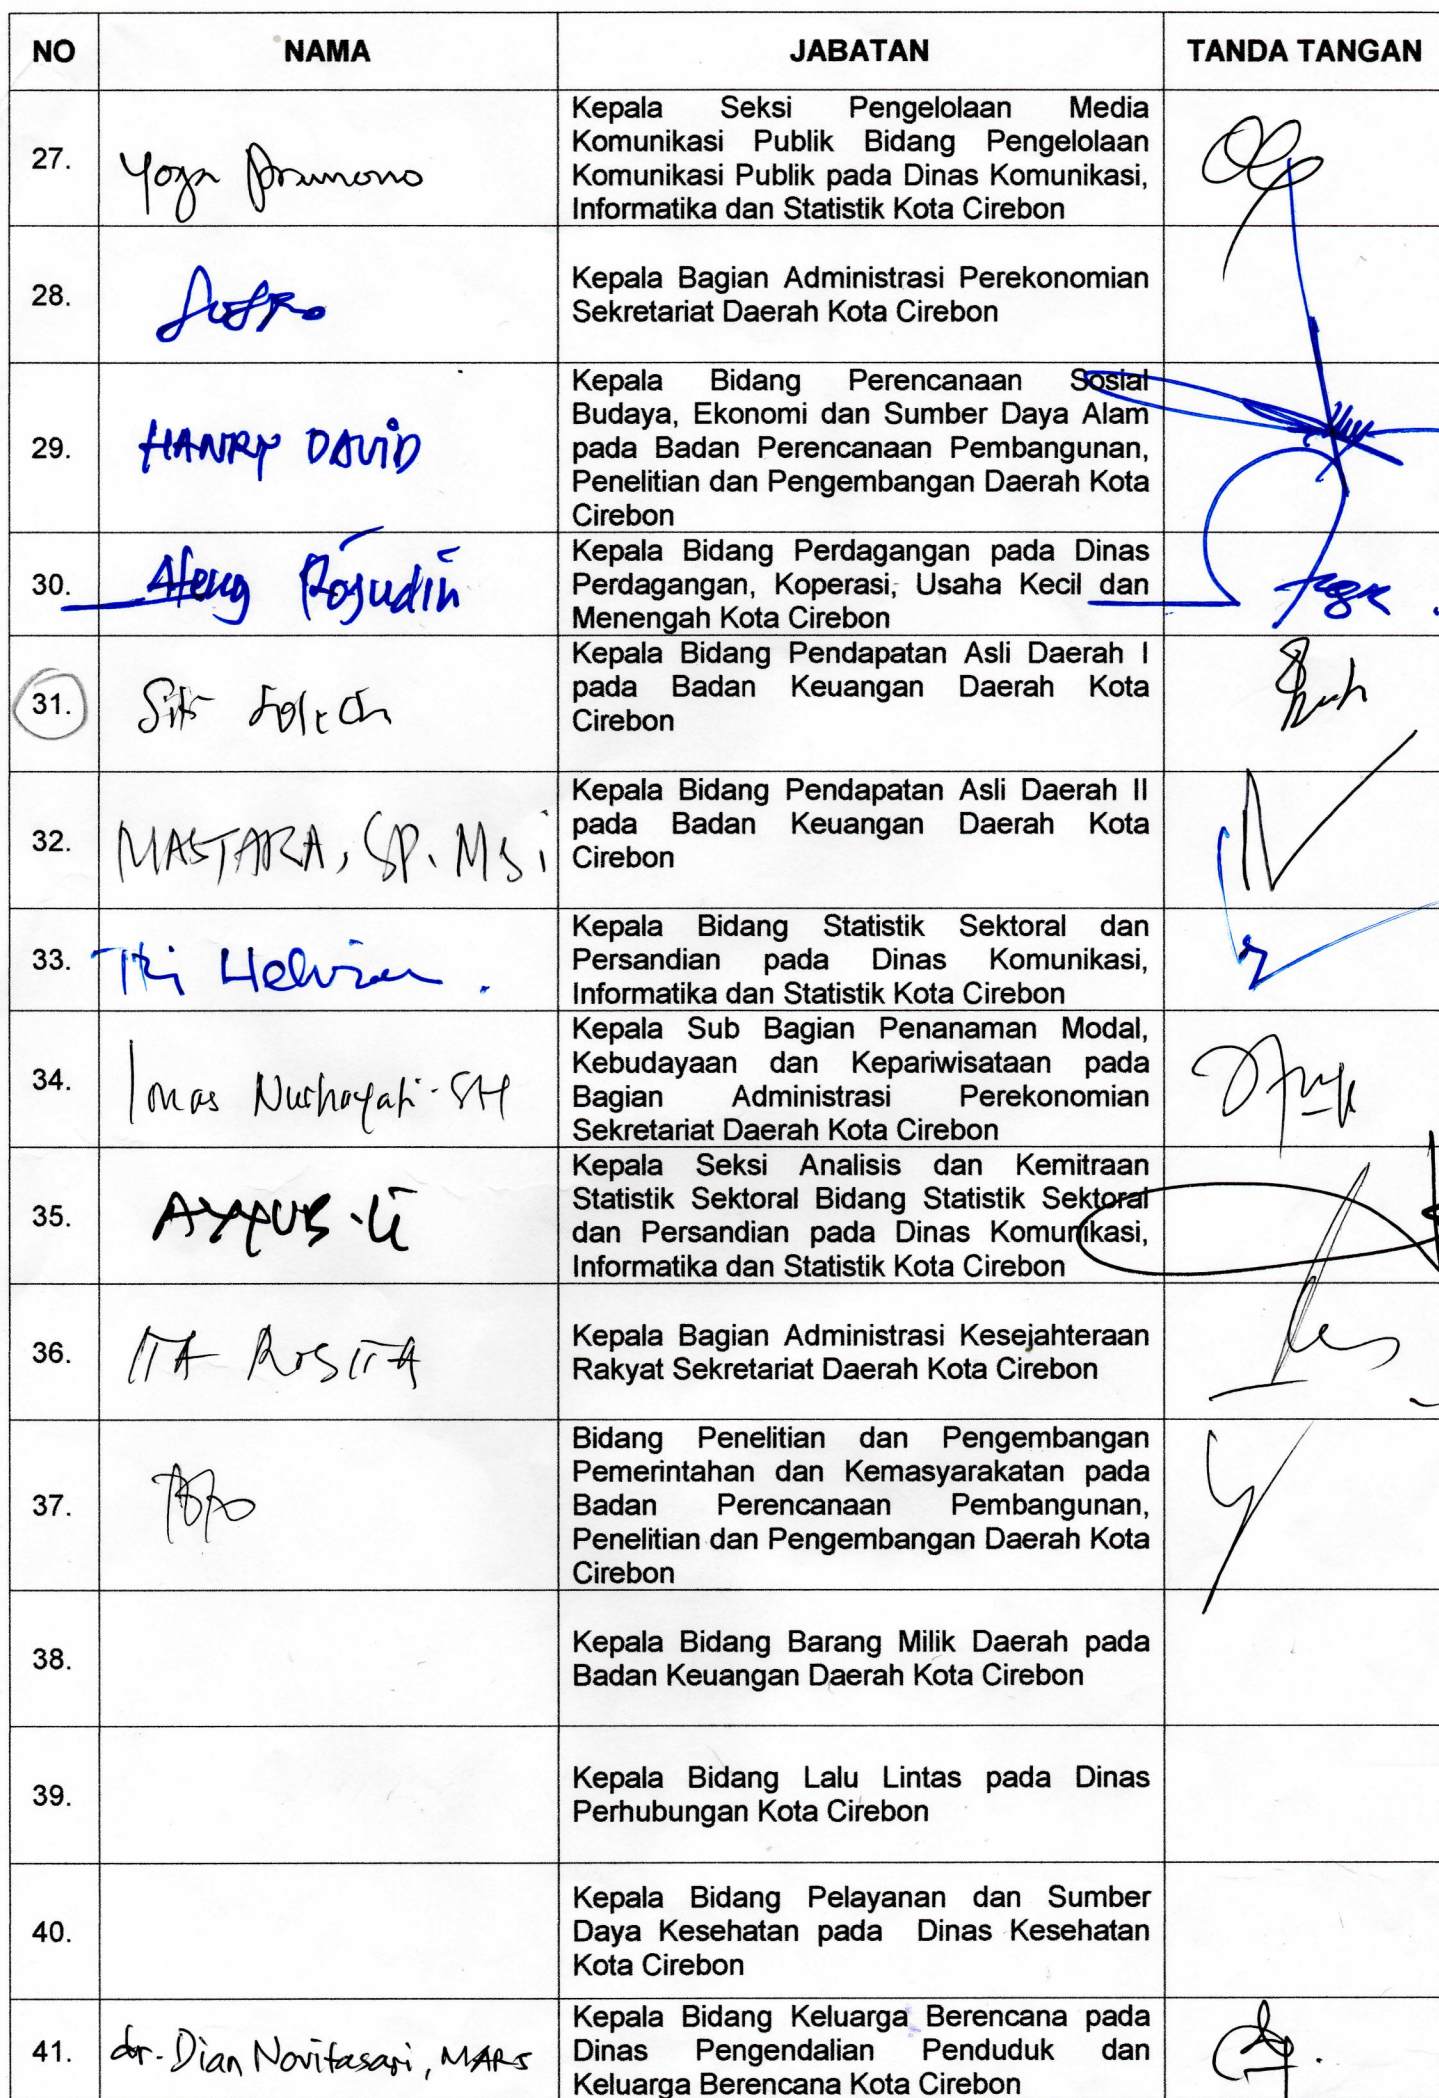 NO NAMA JABATAN TANDA TANGAN
27. Yoga
Kepala Seksi Pengelolaan Media
Komunikasi Publik Bidang Pengelolaan
Komunikasi Publik pada Dinas Komunikasi,
Informatika dan Statistik Kota Cirebon
28.
Kepala Bagian Administrasi Perekonomian
Sekretariat Daerah Kota Cirebon
29. HANRY DAVID
Kepala Bidang Perencanaan Sosial
Budaya, Ekonomi dan Sumber Daya Alam
pada Badan Perencanaan Pembangunan,
Penelitian dan Pengembangan Daerah Kota
Cirebon
30. Rosjudin
Kepala Bidang Perdagangan pada Dinas
Perdagangan, Koperasi, Usaha Kecil dan
Menengah Kota Cirebon
31. Siti
Kepala Bidang Pendapatan Asli Daerah I
pada Badan Keuangan Daerah Kota
Cirebon
32. MASTARA, SP. MSi
Kepala Bidang Pendapatan Asli Daerah II
pada Badan Keuangan Daerah Kota
Cirebon
33. Tri
Kepala Bidang Statistik Sektoral dan
Persandian pada Dinas Komunikasi,
Informatika dan Statistik Kota Cirebon
34. Imas Nurhayati. SH
Kepala Sub Bagian Penanaman Modal,
Kebudayaan dan Kepariwisataan pada
Bagian Administrasi Perekonomian
Sekretariat Daerah Kota Cirebon
35. AYYUB
Kepala Seksi Analisis dan Kemitraan
Statistik Sektoral Bidang Statistik Sektoral
dan Persandian pada Dinas Komunikasi,
Informatika dan Statistik Kota Cirebon
36. ITA ROSITA
Kepala Bagian Administrasi Kesejahteraan
Rakyat Sekretariat Daerah Kota Cirebon
37.
Bidang Penelitian dan Pengembangan
Pemerintahan dan Kemasyarakatan pada
Badan Perencanaan Pembangunan,
Penelitian dan Pengembangan Daerah Kota
Cirebon
38.
Kepala Bidang Barang Milik Daerah pada
Badan Keuangan Daerah Kota Cirebon
39.
Kepala Bidang Lalu Lintas pada Dinas
Perhubungan Kota Cirebon
40.
Kepala Bidang Pelayanan dan Sumber
Daya Kesehatan pada Dinas Kesehatan
Kota Cirebon
41. dr. Dian Novitasari, MARS
Kepala Bidang Keluarga Berencana pada
Dinas Pengendalian Penduduk dan
Keluarga Berencana Kota Cirebon